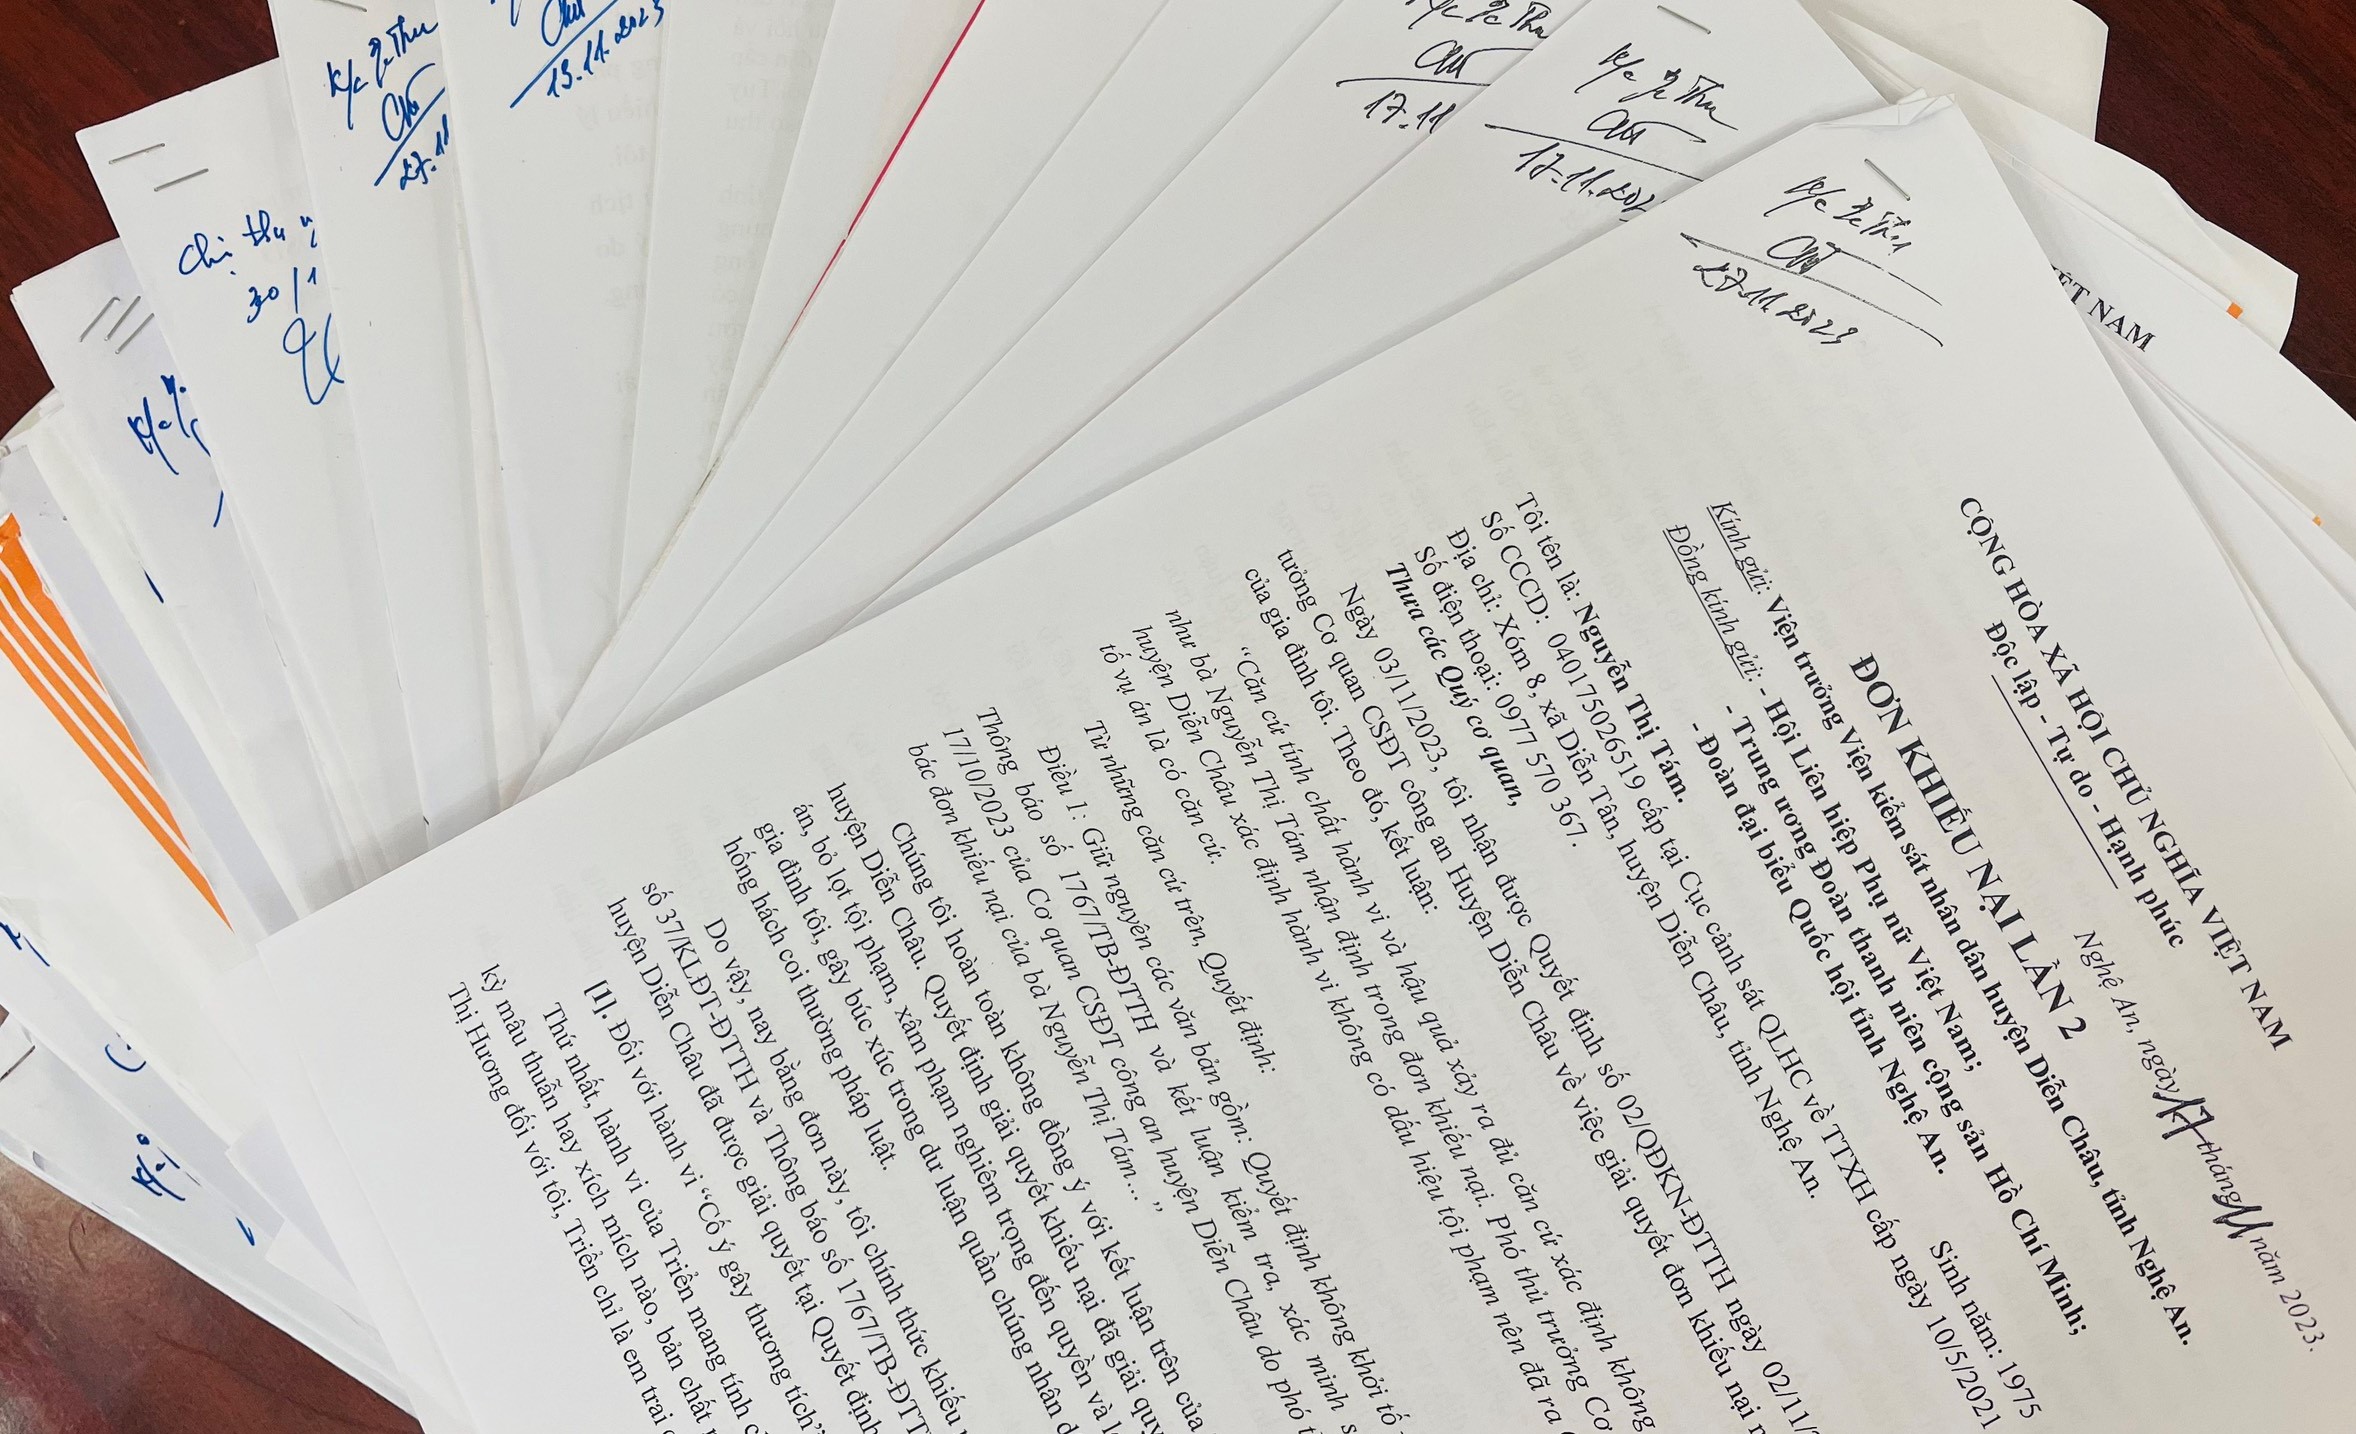 CỘNG HÒA XÃ HỘI CHỦ NGHĨA VIỆT NAM
Độc lập - Tự do - Hạnh phúc
Nghệ An, ngày 17 tháng 11 năm 2023.
ĐƠN KHIẾU NẠI LẦN 2
Kính gửi: Viện trưởng Viện kiểm sát nhân dân huyện Diễn Châu, tỉnh Nghệ An.
Đồng kính gửi: - Hội Liên hiệp Phụ nữ Việt Nam;
- Trung ương Đoàn thanh niên cộng sản Hồ Chí Minh;
- Đoàn đại biểu Quốc hội tỉnh Nghệ An.
Tôi tên là: Nguyễn Thị Tám. Sinh năm: 1975
Số CCCD: 040175026519 cấp tại Cục cảnh sát QLHC về TTXH cấp ngày 10/5/2021
Địa chỉ: Xóm 8, xã Diễn Tân, huyện Diễn Châu, tỉnh Nghệ An.
Số điện thoại: 0977 570 367.
Thưa các Quý cơ quan,
Ngày 03/11/2023, tôi nhận được Quyết định số 02/QĐKN-ĐTTH ngày 02/11/
tưởng Cơ quan CSĐT công an Huyện Diễn Châu về việc giải quyết đơn khiếu nại
của gia đình tôi. Theo đó, kết luận:
“Căn cứ tính chất hành vi và hậu quả xảy ra đủ căn cứ xác định không
như bà Nguyễn Thị Tám nhận định trong đơn khiếu nại. Phó thủ trưởng Cơ
huyện Diễn Châu xác định hành vi không có dấu hiệu tội phạm nên đã ra
tố vụ án là có căn cứ.
Từ những căn cứ trên, Quyết định:
Điều 1: Giữ nguyên các văn bản gồm: Quyết định không khởi tố
Thông báo số 1767/TB-ĐTTH và kết luận kiểm tra, xác minh
17/10/2023 của Cơ quan CSĐT công an huyện Diễn Châu do phó
bác đơn khiếu nại của bà Nguyễn Thị Tám…”
Chúng tôi hoàn toàn không đồng ý với kết luận trên của
huyện Diễn Châu. Quyết định giải quyết khiếu nại đã giải
án, bỏ lọt tội phạm, xâm phạm nghiêm trọng đến quyền và
gia đình tôi, gây bức xúc trong dư luận quần chúng nhân
hống hách coi thường pháp luật.
Do vậy, nay bằng đơn này, tôi chính thức khiếu
số 37/KLĐT-ĐTTH và Thông báo số 1767/TB-ĐTT
huyện Diễn Châu đã được giải quyết tại Quyết định
[1]. Đối với hành vi “Cố ý gây thương tích”
Thứ nhất, hành vi của Triển mang tính
kỳ mâu thuẫn hay xích mích nào, bản chất
Thị Hương đối với tôi, Triển chỉ là em trai
27.11.2023
17.11.202
17.11
13.11.2023
27.11
Chị thu
30/1
ỆT NAM